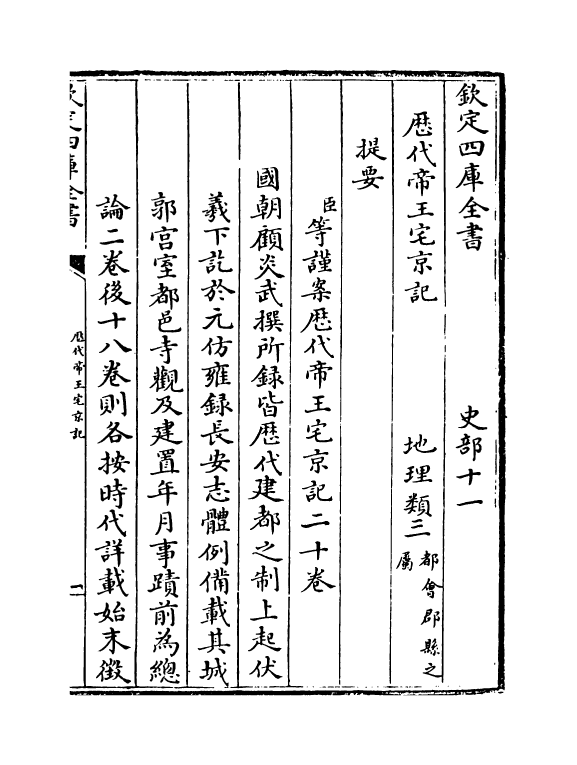 欽定四庫全書　史部十一
歷代帝王宅京記　地理類三都會郡縣之屬
提要
臣等謹案歷代帝王宅京記二十卷
國朝顧炎武撰所録皆歷代建都之制上起伏
羲下訖於元仿雍録長安志體例備載其城
郭宫室都邑寺觀及建置年月事蹟前為總
論二卷後十八卷則各按時代詳載始末徵
欽定四庫全書
歷代帝王宅京記